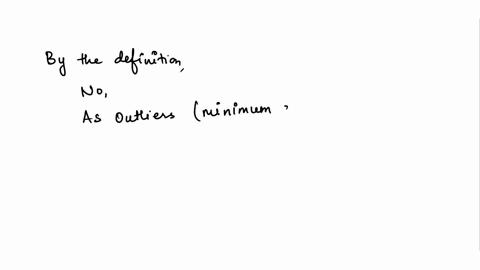 By the definition,
No,
As outliers (minimum,